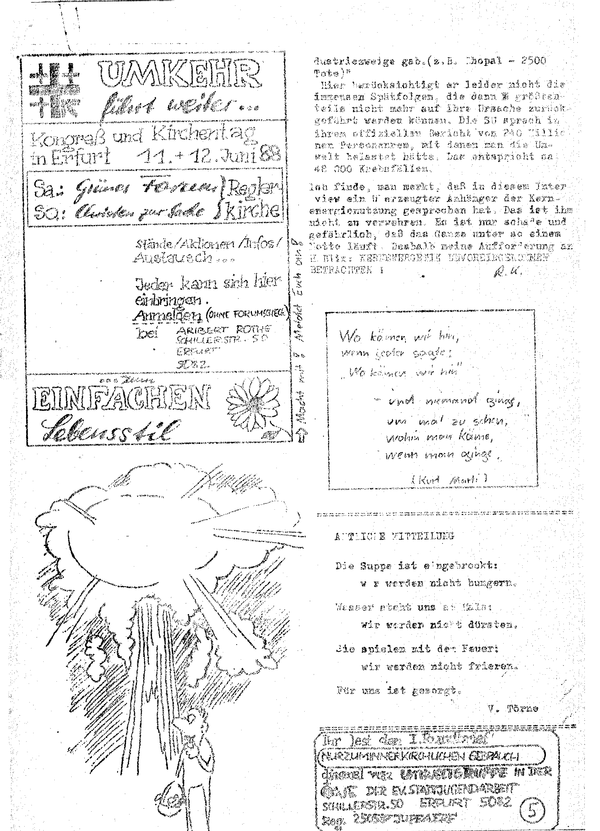 UMKEHR
führt weiter...
Kongreß und Kirchentag
in Erfurt 11.+12. Juni 88
Sa.: Grünes Forum } Regler-
So.: Christen zur Sache } kirche
Stände/Aktionen/Infos/
Austausch...
Jeder kann sich hier
einbringen.
Anmelden (OHNE FORUMSGESPR
bei ARIBERT ROTHE
SCHILLERSTR. 50
ERFURT
5082.
⇒ Macht mit! Meldet Euch an!
... zum
EINFACHEN
Lebensstil
dustriezweige gab.(z.B. Bhopal - 2500
Tote)"
Hier berücksichtigt er leider nicht die
immensen Spätfolgen, die dann größten-
teils nicht mehr auf ihre Ursache zurück-
geführt werden können. Die SU sprach in
ihrem offiziellen Bericht von 240 Millio-
nen Personenrem, mit denen man die Um-
welt belastet hätte. Das entspricht ca.
48 000 Krebsfällen.
Ich finde, man merkt, daß in diesem Inter
view ein überzeugter Anhänger der Kern-
energienutzung gesprochen hat. Das ist ihm
nicht zu verwehren. Es ist nur schade und
gefährlich, daß das Ganze unter so einem
Motto läuft. Deshalb meine Aufforderung an
H. Blitz: KERNENERGETIK UNVOREINGENOMMEN
BETRACHTEN !
R.K.
Wo kämen wir hin,
wenn jeder sagte:
"Wo kämen wir hin"
- und niemand ginge,
um mal zu sehen,
wohin man käme,
wenn man ginge.
(Kurt Marti)
AMTLICHE MITTEILUNG
Die Suppe ist eingebrockt:
wir werden nicht hungern.
Wasser steht uns am Hals:
wir werden nicht dürsten.
Sie spielen mit dem Feuer:
wir werden nicht frieren.
Für uns ist gesorgt.
V. Törne
Ihr lest den 1.
NUR ZUM INNERKIRCHLICHEN GEBRAUCH
UMWELTGRUPPE IN DER
DER EV. STADTJUGENDARBEIT
SCHILLERSTR. 50 ERFURT 5082
5